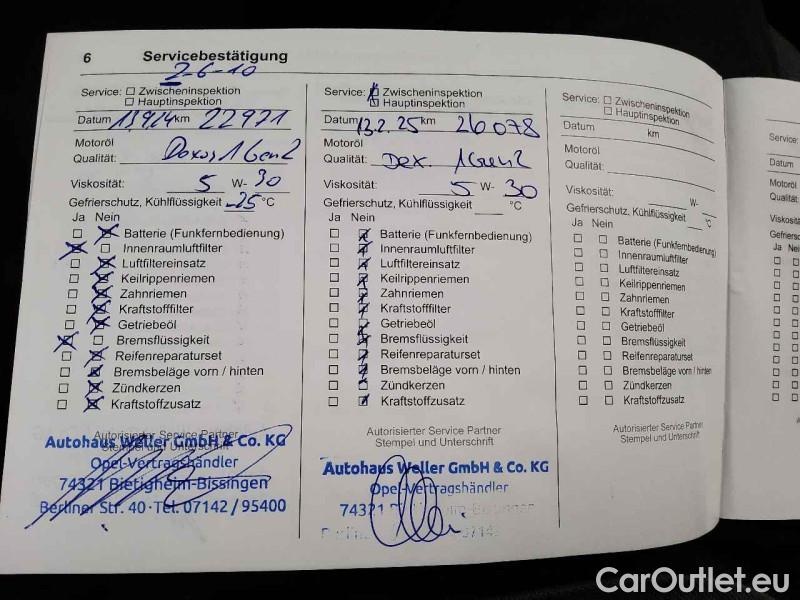 6 Servicebestätigung
2-6-10
Service: Zwischeninspektion
Hauptinspektion
Datum 13.9.24 km 22971
Motoröl
Qualität: Dexos 1 Gen 2
Viskosität: 5 W- 30
Gefrierschutz, Kühlflüssigkeit -25 °C
Ja Nein
Batterie (Funkfernbedienung)
Innenraumluftfilter
Luftfiltereinsatz
Keilrippenriemen
Zahnriemen
Kraftstofffilter
Getriebeöl
Bremsflüssigkeit
Reifenreparaturset
Bremsbeläge vorn / hinten
Zündkerzen
Kraftstoffzusatz
Autorisierter Service Partner
Stempel und Unterschrift
Autohaus Weller GmbH & Co. KG
Opel-Vertragshändler
74321 Bietigheim-Bissingen
Berliner Str. 40 · Tel. 07142 / 95400
Service: Zwischeninspektion
Hauptinspektion
Datum 13.2.25 km 26078
Motoröl
Qualität: Dex. 1 Gen 2
Viskosität: 5 W- 30
Gefrierschutz, Kühlflüssigkeit °C
Ja Nein
Batterie (Funkfernbedienung)
Innenraumluftfilter
Luftfiltereinsatz
Keilrippenriemen
Zahnriemen
Kraftstofffilter
Getriebeöl
Bremsflüssigkeit
Reifenreparaturset
Bremsbeläge vorn / hinten
Zündkerzen
Kraftstoffzusatz
Autorisierter Service Partner
Stempel und Unterschrift
Autohaus Weller GmbH & Co. KG
Opel-Vertragshändler
74321
Service: Zwischeninspektion
Hauptinspektion
Datum km
Motoröl
Qualität:
Viskosität: W-
Gefrierschutz, Kühlflüssigkeit °C
Ja Nein
Batterie (Funkfernbedienung)
Innenraumluftfilter
Luftfiltereinsatz
Keilrippenriemen
Zahnriemen
Kraftstofffilter
Getriebeöl
Bremsflüssigkeit
Reifenreparaturset
Bremsbeläge vorn / hinten
Zündkerzen
Kraftstoffzusatz
Autorisierter Service Partner
Stempel und Unterschrift
Service:
Datum
Motoröl
Qualität:
Ja
CarOutlet.eu